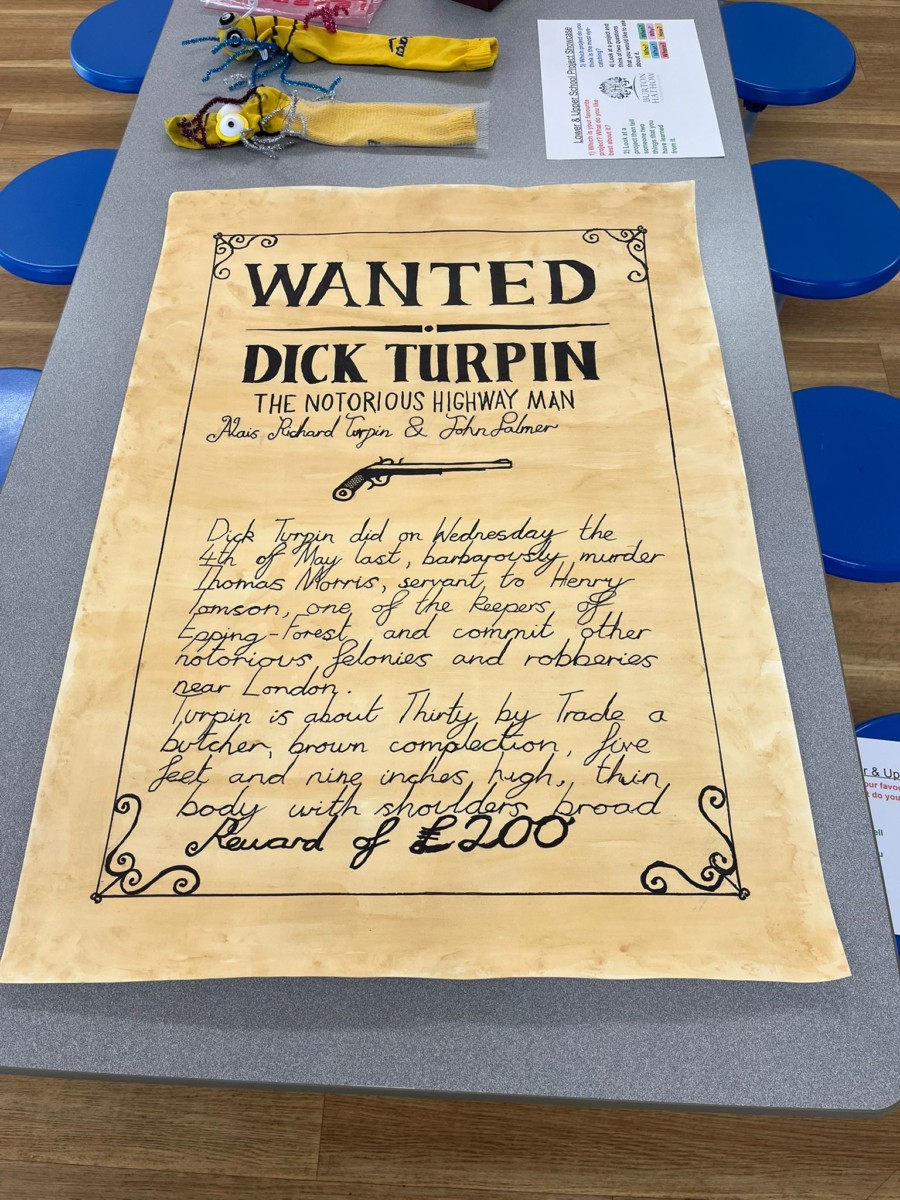 WANTED
DICK TURPIN
THE NOTORIOUS HIGHWAY MAN
Alais Richard Turpin & John Palmer
Dick Turpin did on Wednesday the
4th of May last, barbarously murder
Thomas Morris, servant to Henry
Tomson, one of the keepers of
Epping-Forest and commit other
notorious felonies and robberies
near London.
Turpin is about Thirty by Trade a
butcher, brown complection, five
feet and nine inches high, thin
body with shoulders broad
Reward of £200
Lower & Upper School Project Showcase
1) Which is your favourite
project? What do you like
best about it?
2) Look at a
project then tell
someone two
things that you
have learned
from it.
3) Which project do you
think is the most eye-
catching?
4) Look at a project and
think of two questions
that you would like to ask
about it.
BURTON
HATHOW
r & Up
our favou
do you
ell
u